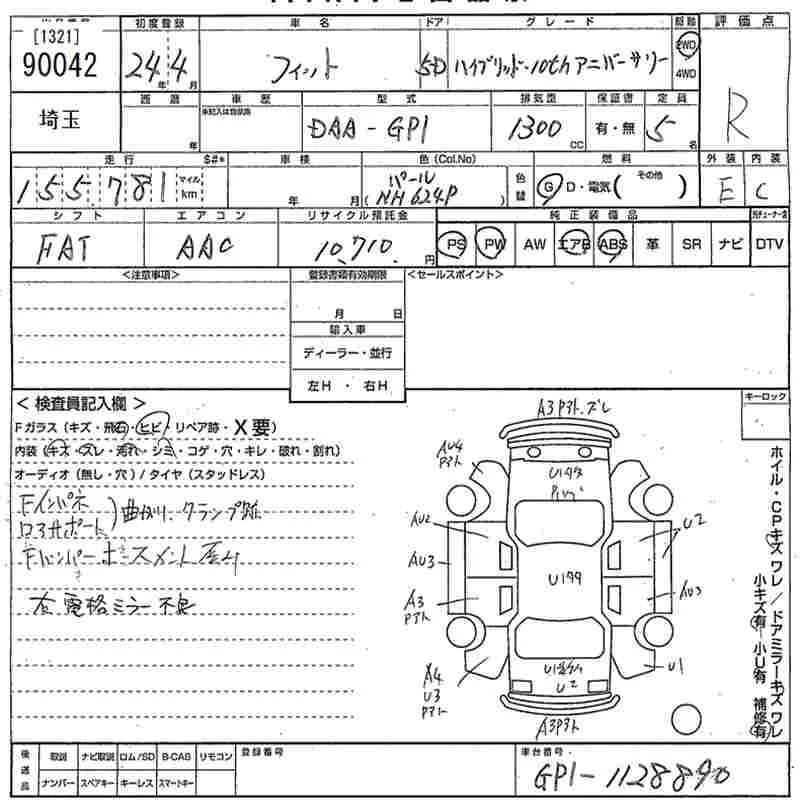 [1321]
90042
初度登録
車名
ドア
グレード
駆動
評価点
24年4月
フィット
5D
ハイブリッド・10thアニバーサリー
2WD
4WD
R
埼玉
車歴
型式
排気量
保証書
定員
年
DAA-GP1
1300cc
有・無
5名
走行
S#*
車検
色(Col.No)
燃料
外装
内装
155781
マイル
km
年
月
パール
(NH624P)
色替
G D・電気(その他)
E
C
シフト
エアコン
リサイクル預託金
純正装備品
FAT
AAC
10,710.円
PS
PW
AW
エアB
ABS
革
SR
ナビ
DTV
<注意事項>
登録書類有効期限
<セールスポイント>
月
日
輸入車
ディーラー・並行
左H・右H
キーロック
<検査員記入欄>
Fガラス(キズ・飛石・ヒビ・リペア跡・X要)
内装(キズ・スレ・汚れ・シミ・コゲ・穴・キレ・破れ・割れ)
オーディオ(無し・穴)/タイヤ(スタッドレス)
Fインパネ
ロアサポート
曲がり、クランプ跡
右電格ミラー不良
A3P3ト.ズレ
AU4
Pアト
U1タタ
AU2
U2
AU3
U1タタ
A3
Pアト
AU3
A4
U3
Pアト
U2
U1
A3P3ト
ホイル・CPキズ ワレ/ドアミラーキズ ワレ
小キズ有 小U有 補修有
後送品
取説
ナビ取説
ロム/SD
B-CAS
リモコン
登録番号
車台番号
ナンバー
スペアキー
キーレス
スマートキー
GP1-1128890